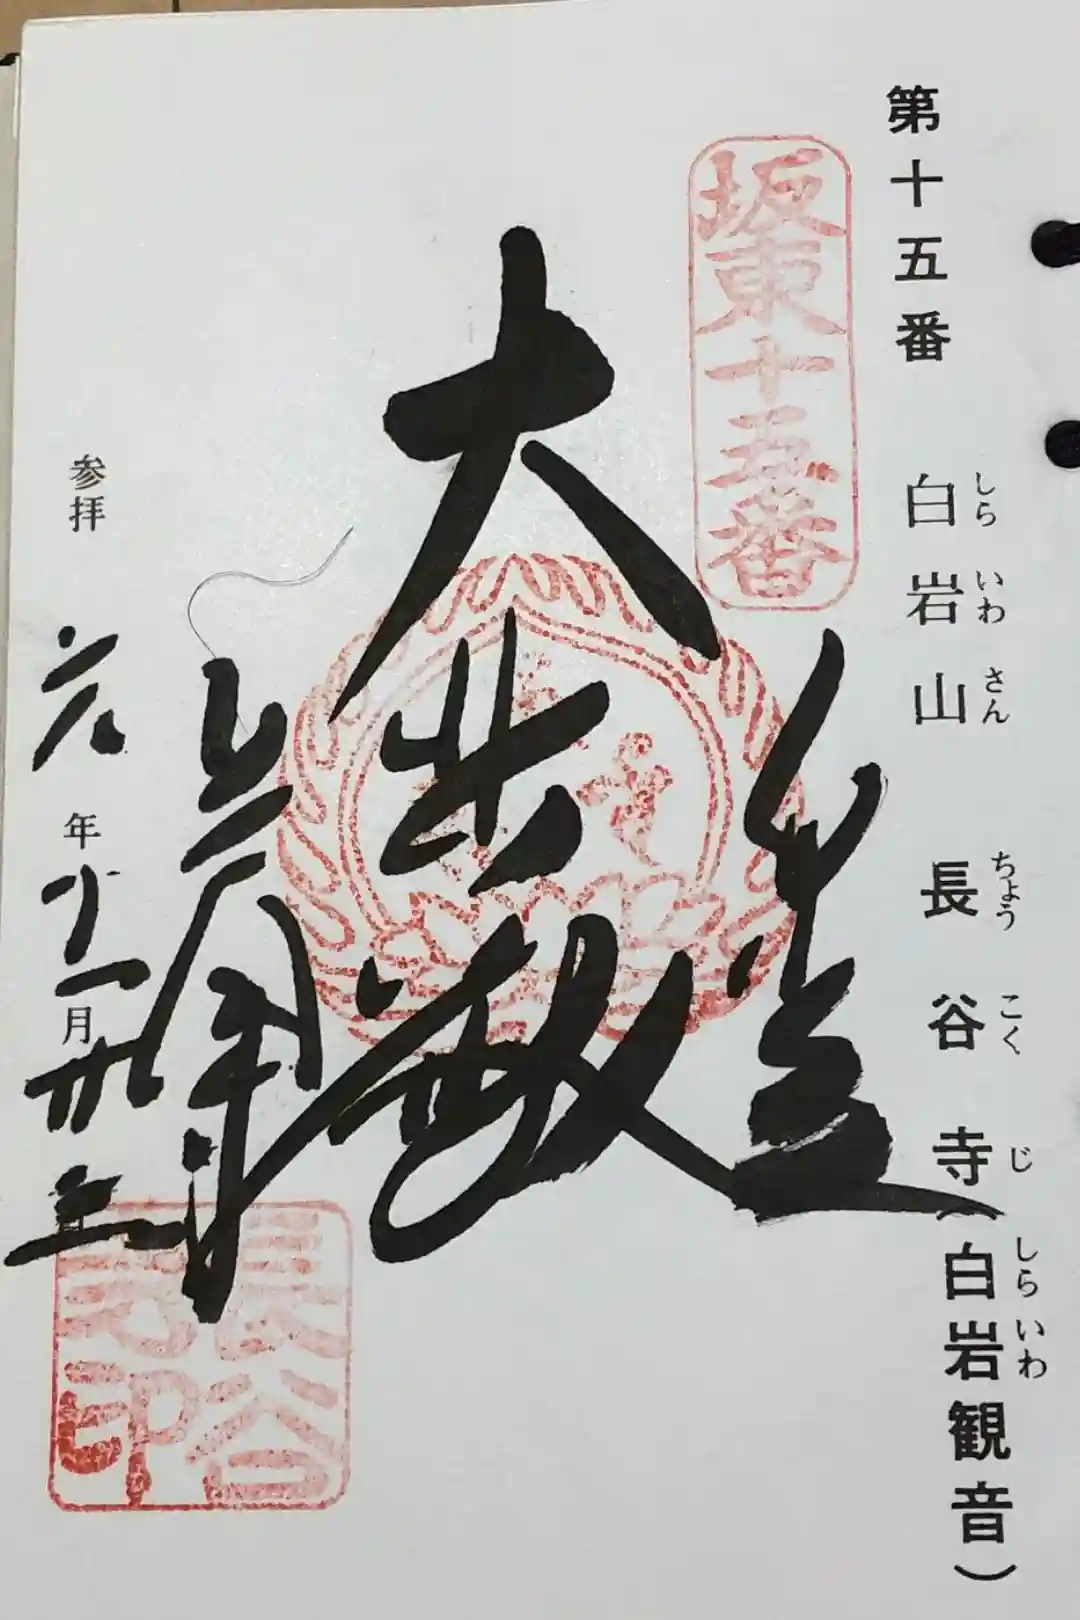 第十五番 白岩山 長谷寺(白岩観音)
しらいわさん ちょうこくじ しらいわ
坂東十五番
奉拝
大悲殿
長谷寺
参拝 六年十一月廿五日
長谷寺印